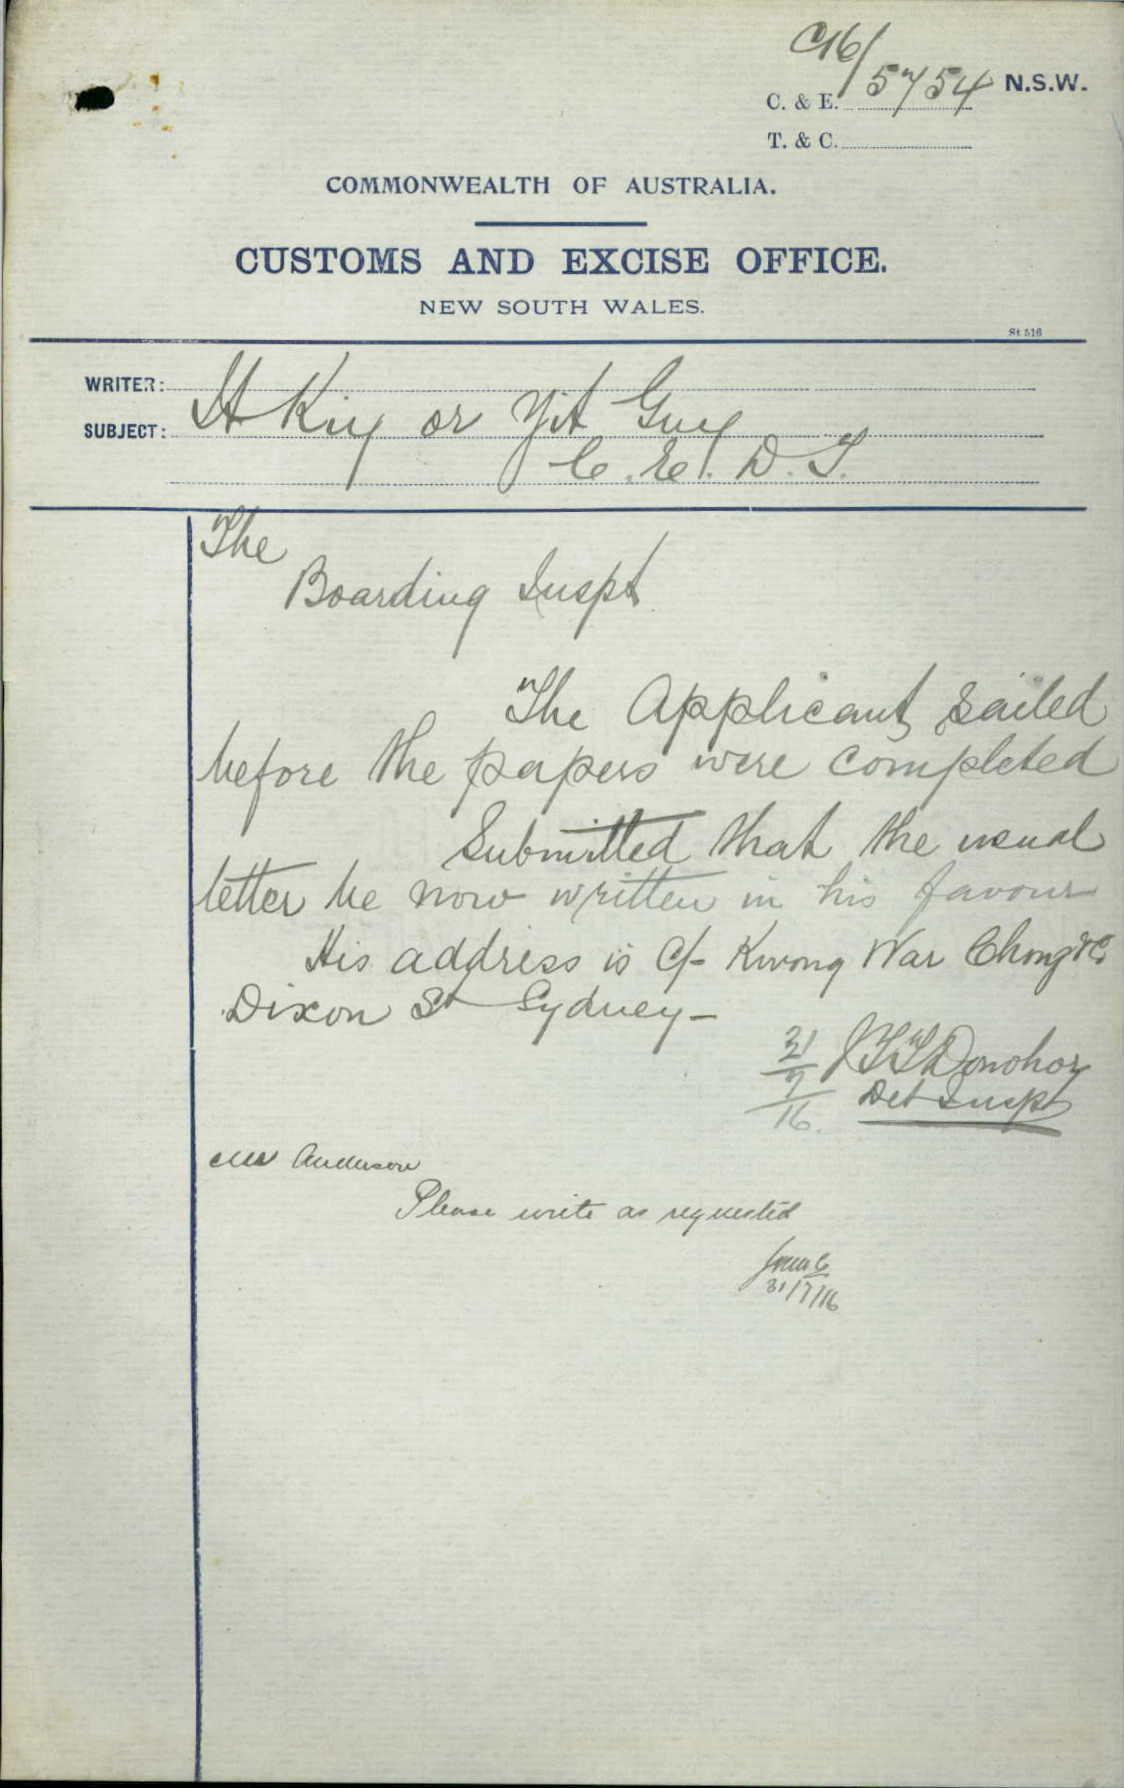 C16/5754 N.S.W.
C. & E.
T. & C.
COMMONWEALTH OF AUSTRALIA.
CUSTOMS AND EXCISE OFFICE.
NEW SOUTH WALES.
St 516
WRITER:
SUBJECT: or Yit Guy
C.E.D.T.
The
Boarding Inspt
The Applicant sailed
before the papers were completed
Submitted that the usual
letter be now written in his favour
His address is c/- Kwong War Chong & Co
Dixon St Sydney-
Donohoe
Det Inspt
Mr Anderson
Please write as requested
31/7/16